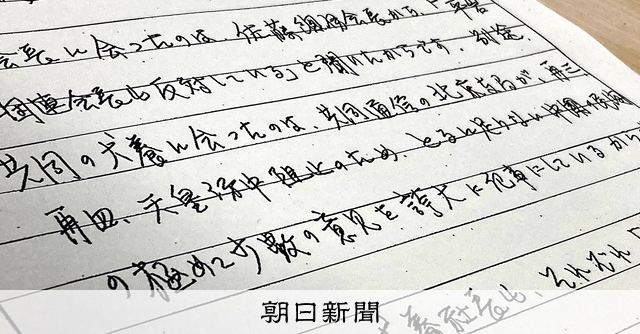 会長に会ったのは、佐藤経団連会長から、「平岩
団連会長も反対している」と聞いたからです。別途、
共同の犬養に会ったのは、共同通信の北京支局が、再三
再四、天皇訪中阻止のため、とるに足りない中国の
の極めて少数の意見を誇大に記事にしているから
犬養社長も、それぞれ「
朝日新聞